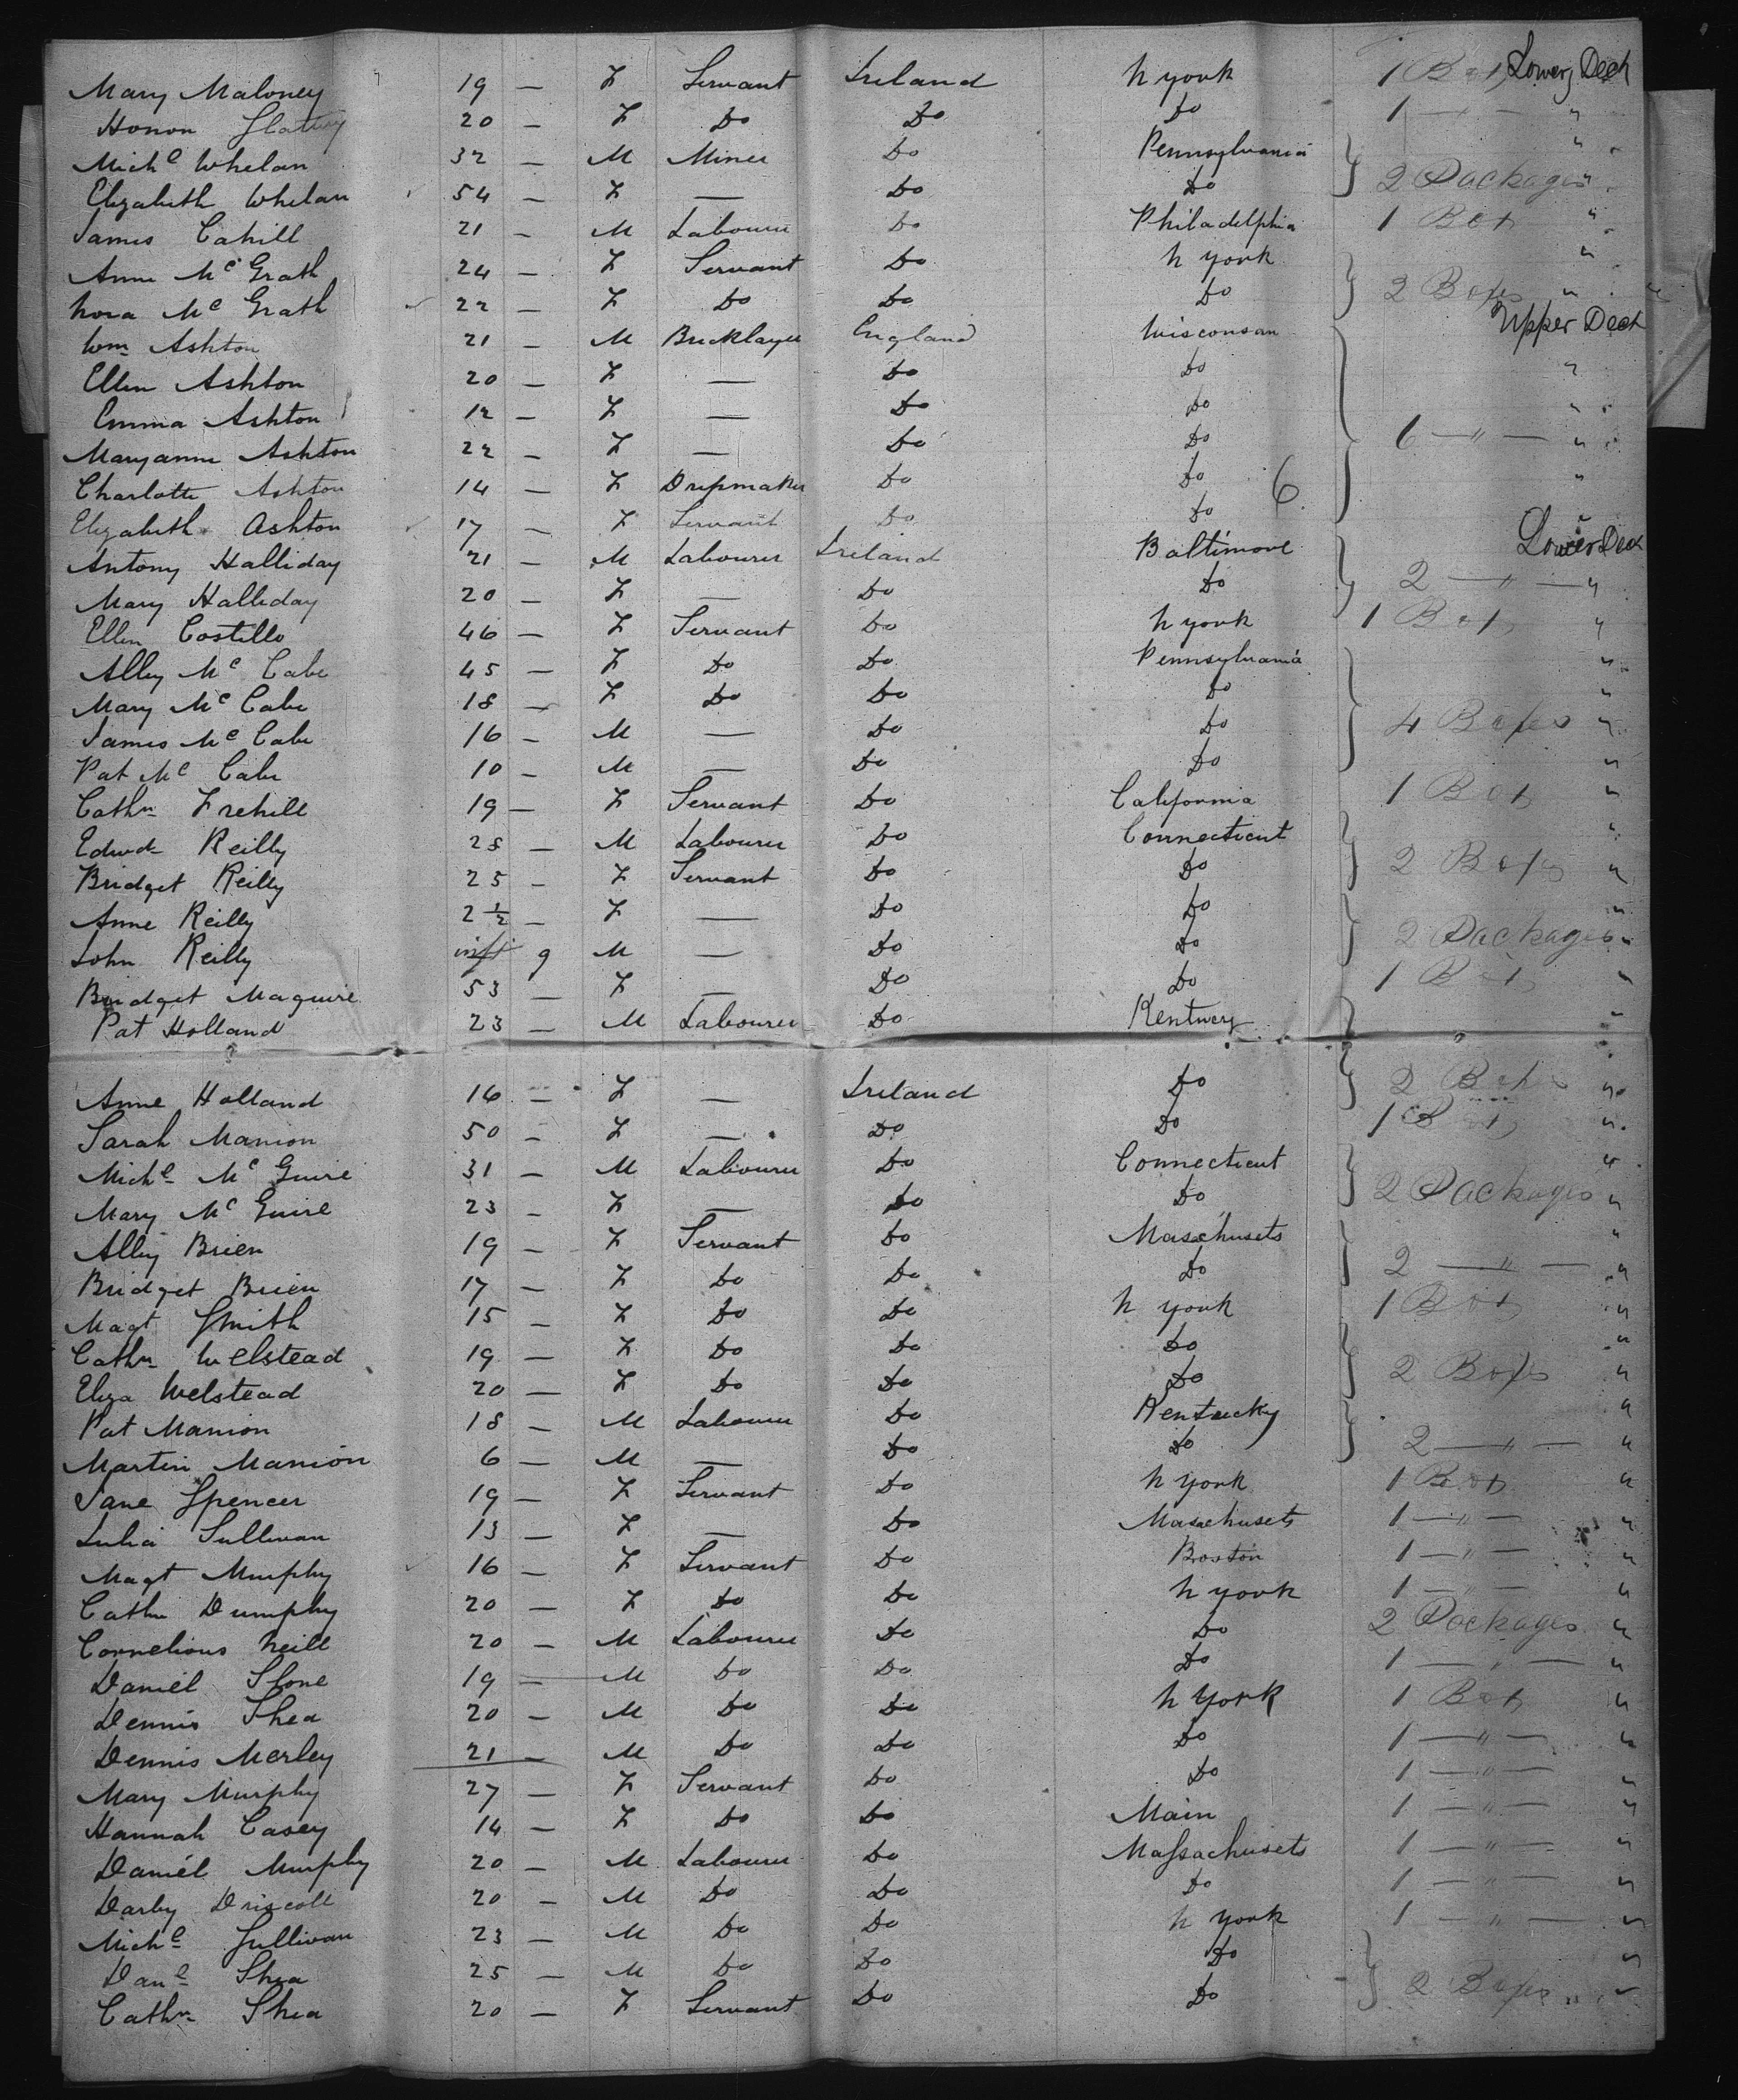 Mary Maloney 19 — F Servant Ireland N York 1 Box Lower Deck
Honor 20 — F Do Do Do 1 — "
Mich.l Whelan 32 — M Miner Do Pennsylvania "
Elizabeth Whelan 54 — F — Do Do 2 Packages "
James Cahill 21 — M Labourer Do Philadelphia 1 Box "
Anne Mc Grath 24 — F Servant Do N York "
Nora Mc Grath 22 — F Do Do Do 2 Boxes "
Wm Ashton 21 — M Bricklayer England Wisconsan Upper Deck
Ellen Ashton 20 — F — Do Do "
Emma Ashton 12 — F — Do Do "
Maryanne Ashton 22 — F — Do Do 6 — " — "
Charlotte Ashton 14 — F Dressmaker Do Do 6 "
Elizabeth Ashton 17 — F Servant Do Do "
Antony Halliday 21 — M Labourer Ireland Baltimore Lower Deck
Mary Halliday 20 — F — Do Do 2 — " — "
Ellen Costillo 46 — F Servant Do N York 1 Box "
Alley Mc Cabe 45 — F Do Do Pennsylvania "
Mary Mc Cabe 18 — F Do Do Do "
James Mc Cabe 16 — M — Do Do 4 Boxes "
Pat Mc Cabe 10 — M — Do Do "
Cathn Frehill 19 — F Servant Do California 1 Box "
Edwd Reilly 28 — M Labourer Do Connecticut "
Bridget Reilly 25 — F Servant Do Do 2 Boxes "
Anne Reilly 2 1/2 — F — Do Do "
John Reilly inft 9 M — Do Do 2 Packages "
Bridget Maguire 53 — F — Do Do 1 Box "
Pat Holland 23 — M Labourer Do Kentucy "
Anne Holland 16 — F — Ireland Do 2 Boxes "
Sarah Manion 50 — F — Do Do 1 Box "
Michl Mc Guire 31 — M Labourer Do Connecticut "
Mary Mc Guire 23 — F — Do Do 2 Packages "
Alley Brien 19 — F Servant Do Masachusets "
Bridget Brien 17 — F Do Do Do 2 — " — "
Magt Smith 15 — F Do Do N York 1 Box "
Cathn Welstead 19 — F Do Do Do "
Eliza Welstead 20 — F Do Do Do 2 Boxes "
Pat Manion 18 — M Labourer Do Kentucky "
Martin Manion 6 — M — Do Do 2 — " — "
Jane Spencer 19 — F Servant Do N York 1 Box "
Julia Sullivan 13 — F — Do Masachusets 1 — " — "
Magt Murphy 16 — F Servant Do Boston 1 — " — "
Cathn Dumphy 20 — F Do Do N York 1 — " — "
Cornelious Neill 20 — M Labourer Do Do 2 Packages "
Daniel Slone 19 — M Do Do Do 1 — " — "
Dennis Shea 20 — M Do Do N York 1 Box "
Dennis Merley 21 — M Do Do Do 1 — " — "
Mary Murphy 27 — F Servant Do Do 1 — " — "
Hannah Casey 14 — F Do Do Main 1 — " — "
Daniel Murphy 20 — M Labourer Do Massachusets 1 — " — "
Darby Driscoll 20 — M Do Do Do 1 — " — "
Michl Sullivan 23 — M Do Do N York 1 — " — "
Danl Shea 25 — M Do Do Do "
Cathn Shea 20 — F Servant Do Do 2 Boxes "